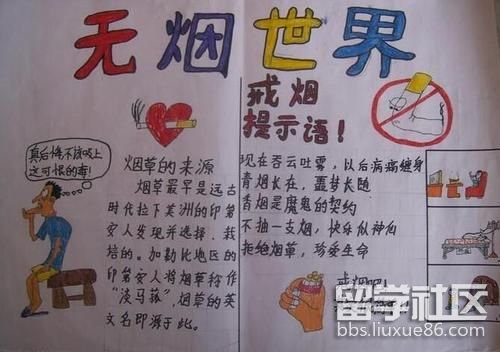 无烟世界
戒烟
提示语!
真后悔不该吸上
这可恨的毒!
烟草的来源
烟草最早是远古
时代拉丁美洲的印第
安人发现并选择.栽
培的。加勒比地区的
印第安人将烟草称作
"淡马菰".烟草的英
文名即源于此。
现在吞云吐雾,以后病痛缠身
青烟长在,噩梦长随
香烟是魔鬼的契约
不抽一支烟,快乐似神仙
拒绝烟草,珍爱生命
戒烟吧!
留学社区
bbs.liuxue86.com